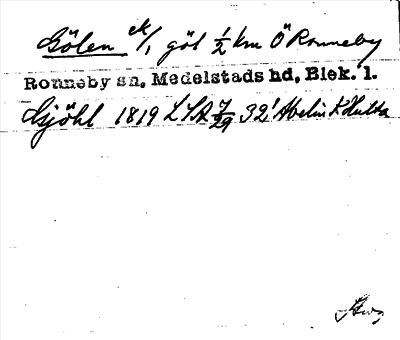 Gölen ek/1 göl ½ km Ö Ronneby
Ronneby sn, Medelstads hd, Blek. l.
Gjöhl 1819 LSA 7/29 32' Abelin K Hulta